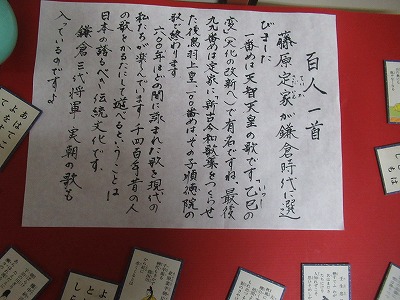 百人一首
藤原定家が鎌倉時代に選
びました
一番めは天智天皇の歌です。乙巳の
変(大化の改新)で有名ですね。最後
九九番めは定家に新古今和歌集をつくらせ
た後鳥羽上皇一〇〇番めはその子順徳院の
歌で終わります
六〇〇年ほどの間に詠まれた歌を現代の
私たちが楽しんでいます。千四百年昔の人
の歌をかるたにして遊べるということは
日本の誇るべき伝統文化です。
鎌倉三代将軍 実朝の歌も
入っているのですよ